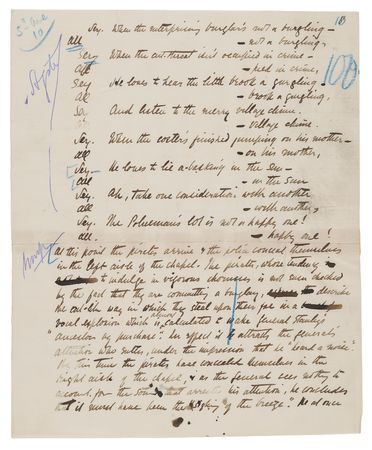 5th Dec
10
18)
100
Sey. When the enterprising burglar's not a burgling—
All — not a burgling,
Ser When the cut throat isn't occupied in crime,—
All — —ied in crime,
Sey He loves to hear the little brook a gurgling—
Al — brook a gurgling,
Se And listen to the merry village chime—
— Village chime.
Sey. When the coster's finished jumping on his mother—
all — on his mother,
Sey— He loves to lie a-basking in the sun—
all — in the sun
Sey Ah, take one consideration with another
— with another,
Sey. The Policeman's lot is not a happy one!
all. — happy one!
At this point the pirates arrive & the police conceal themselves
in the left aisle of the chapel. The pirates, whose tendency
to indulge in vigorous choruses is not even checked
by the fact that they are committing a burglary, describe
the cat-like way in which they steal upon their in a
vocal explosion which is calculated to make General Stanley's
"ancestors by purchase". Its effect is to attract the General's
attention who enters, under the impression that he "heard a noise"
By this time the pirates have concealed themselves in the
Right aisle of the chapel, & as the General sees nothing to
account for the sound that arrests his attention, he concludes
that it must have been the sighing "of the breeze". He at once